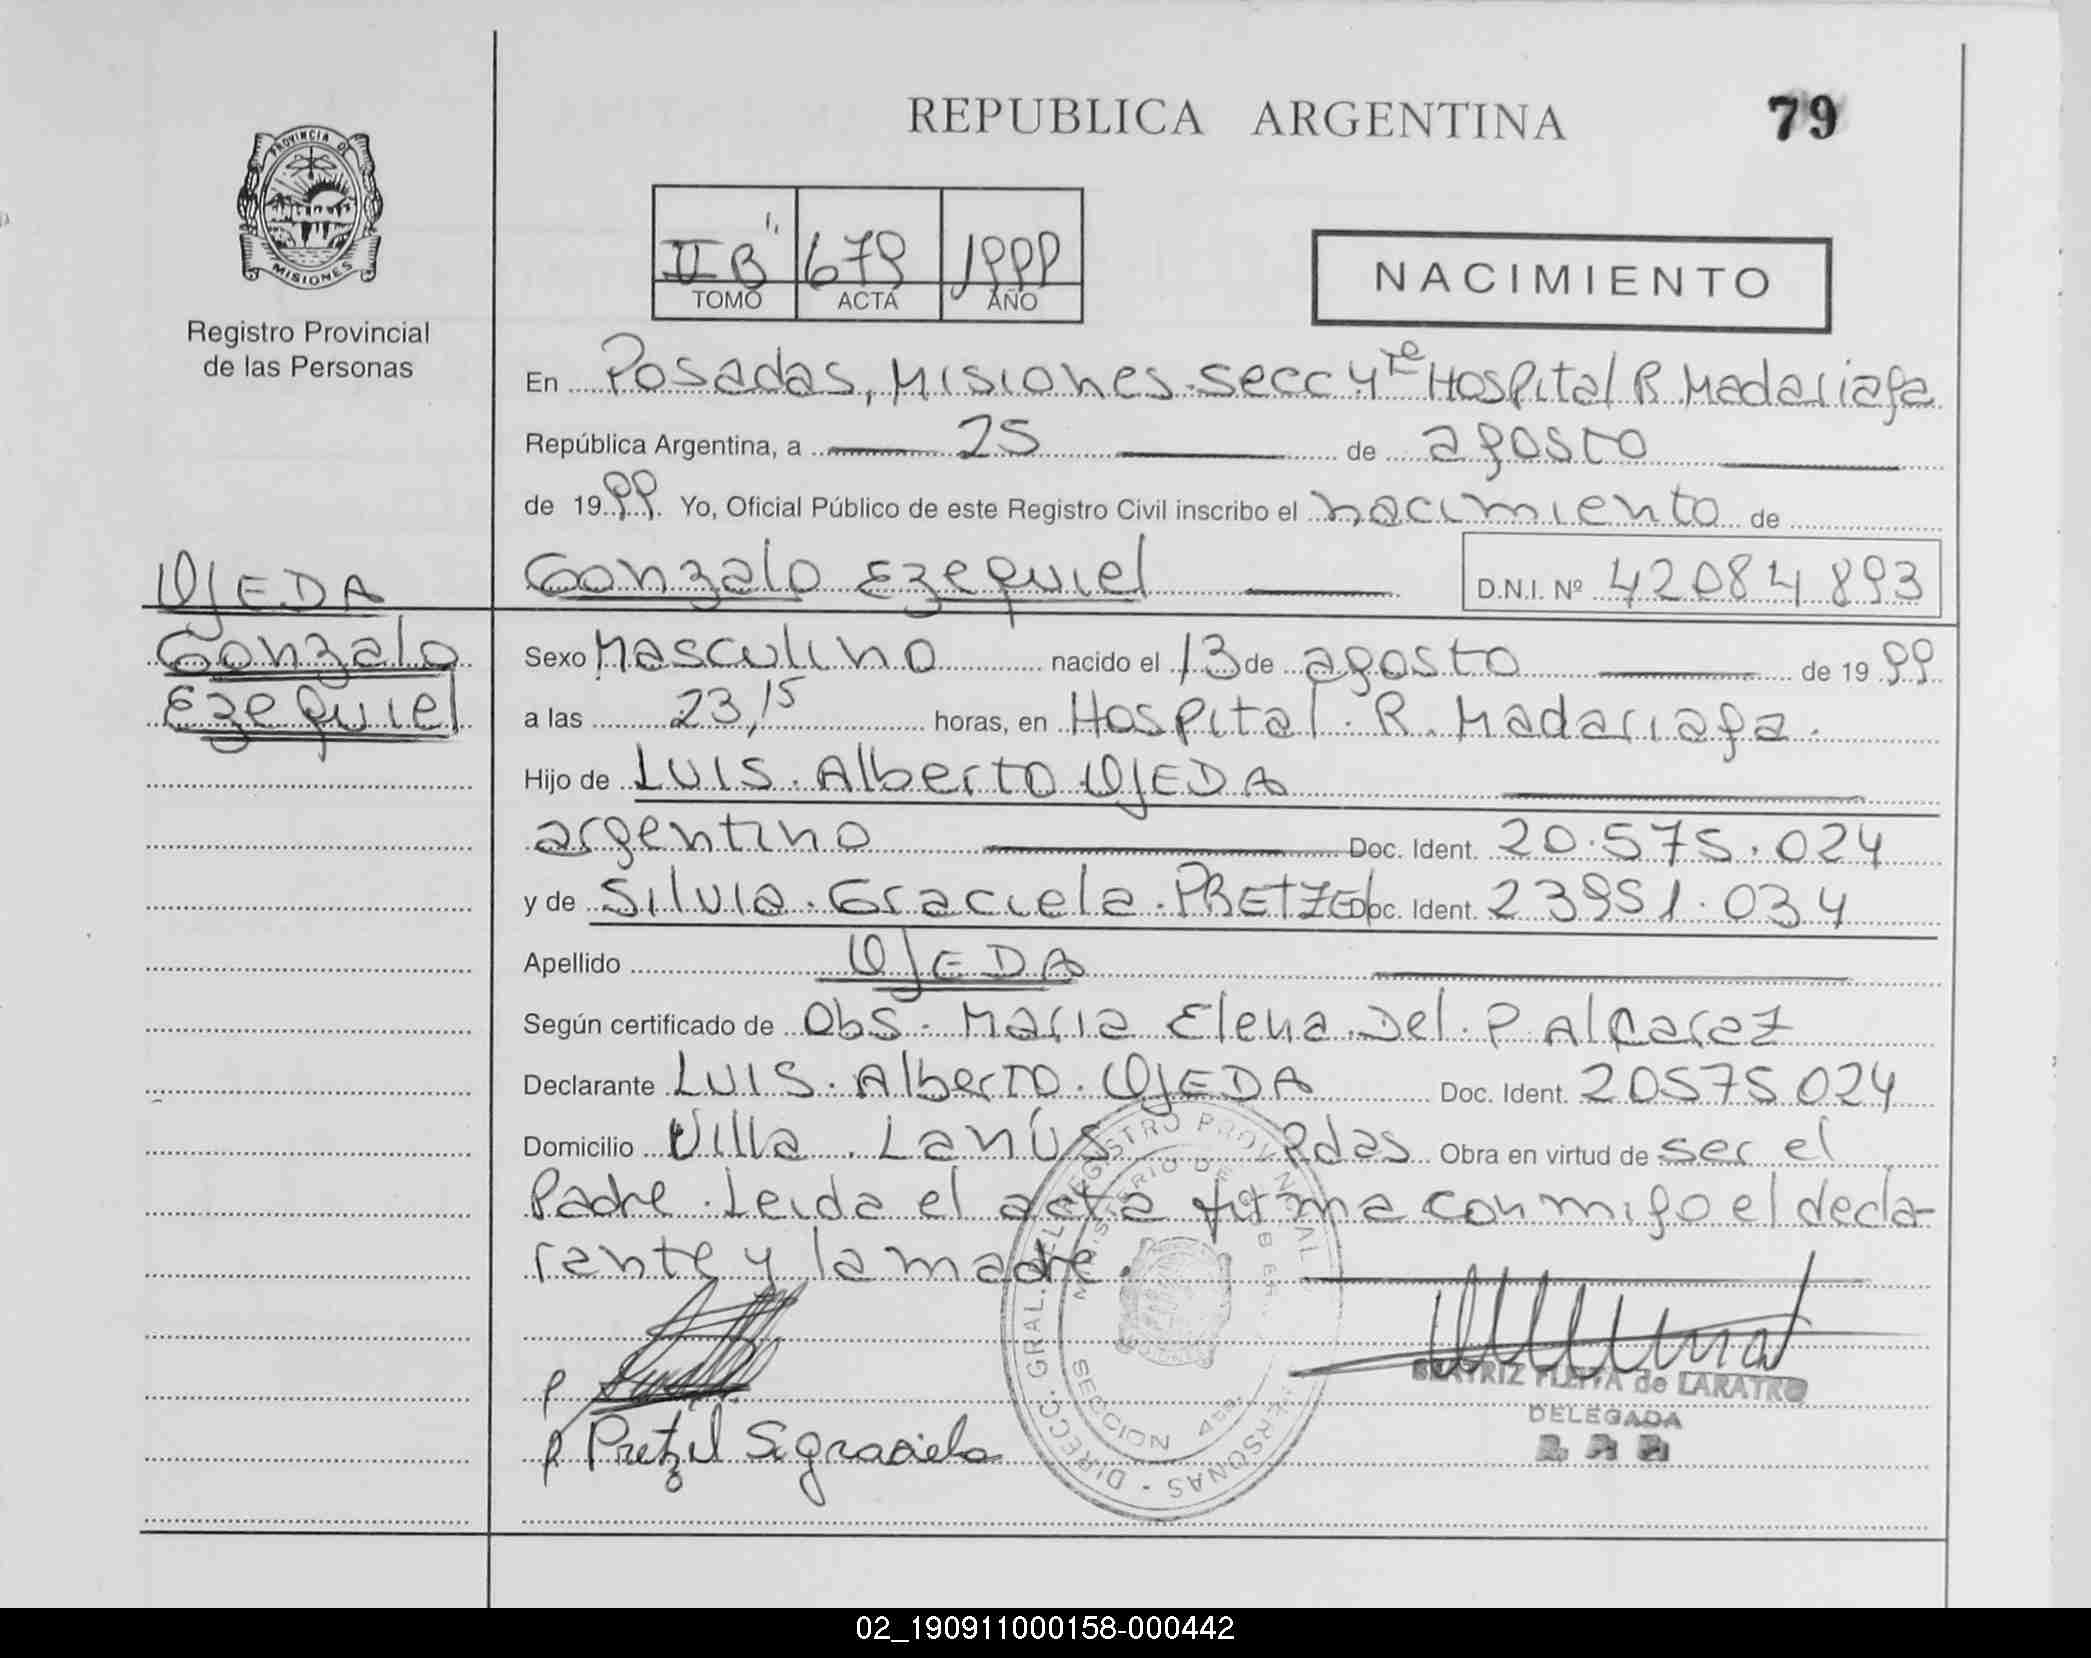 REPUBLICA ARGENTINA
79
PROVINCIA DE
MISIONES
Registro Provincial
de las Personas
II "B" 679 1999
TOMO ACTA AÑO
NACIMIENTO
En Posadas, Misiones. Secc 4ta Hospital R. Madariaga
República Argentina, a 25 de agosto
de 1999 Yo, Oficial Público de este Registro Civil inscribo el nacimiento de
Gonzalo Ezequiel D.N.I. Nº 42084893
OJEDA
Gonzalo
Ezequiel
Sexo Masculino nacido el 13 de agosto de 1999
a las 23,15 horas, en Hospital. R. Madariaga.
Hijo de LUIS. Alberto OJEDA
argentino Doc. Ident. 20.575.024
y de Silvia. Graciela. PRETZEL Doc. Ident. 23951.034
Apellido OJEDA
Según certificado de Obs. Maria Elena. Del. P. Alcaraz
Declarante LUIS. Alberto. OJEDA Doc. Ident. 20575024
Domicilio Villa. Lanús Pdas Obra en virtud de ser el
Padre. Leida el acta firma conmigo el decla-
rante y la madre.
p
p Pretzel S. graciela
DIRECC. GRAL. DEL REGISTRO PROVINCIAL PERSONAS
MINISTERIO DE GOBIER.
SECCION 4ta.
BEATRIZ de LARATRO
DELEGADA
02_190911000158-000442